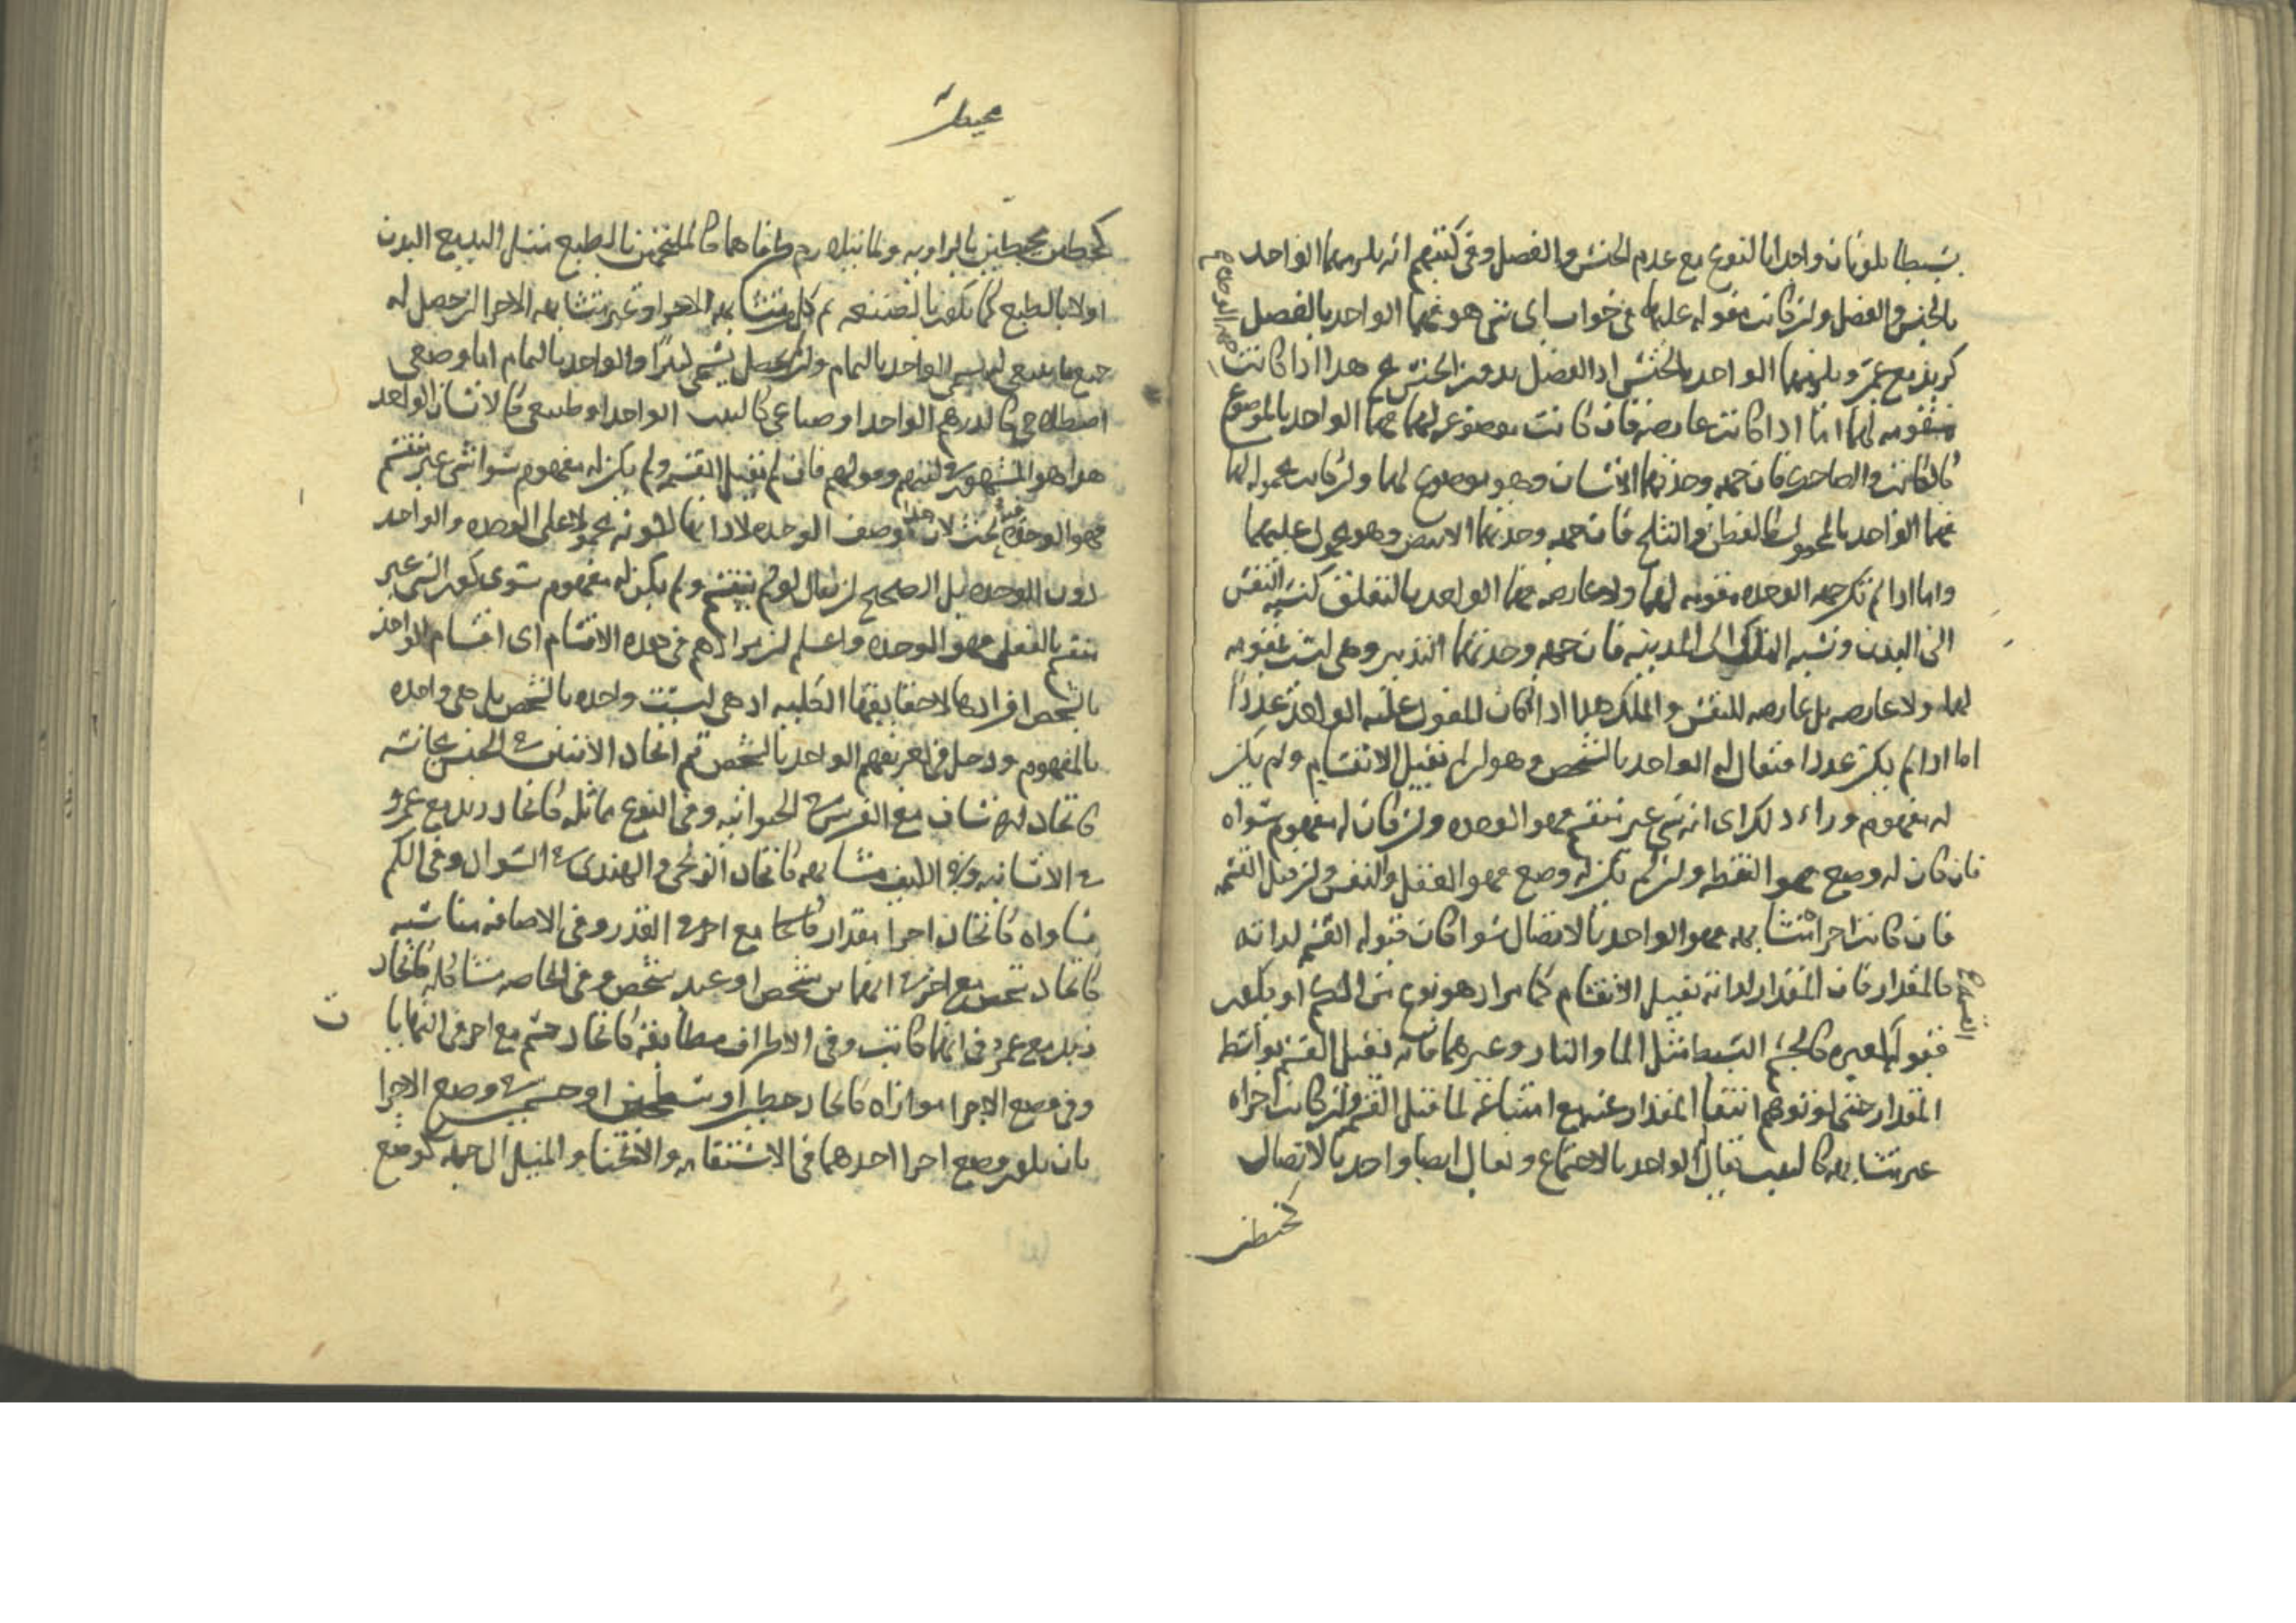 بسيطا يلونان واحدا بالنوع مع عدم الجنس والفصل وفى كتبهم انه يلزمهما الواحد
بالجنس والفصل ولن كانت مقوله عليهما فى جواب اى شى هو فهما الواحد بالفصل
كزيد مع عمرو ويلزمهما الواحد بالجنس اذ الفصل بدون الجنس مح هذا اذا كانت
جهة الوحدة
مقومه لهما اما اذا كانت عارضه فان كانت موضوعه لهما فهما الواحد بالموضوع
كالكاتب والضاحك فان جهه وحدتهما الانسان وهو موضوع لهما ولن كانت محموله لهما
فهما الواحد بالمحمول كالقطن والثلج فان جهه وحدتهما الابيض وهو محمول عليهما
واما اذا لم تكن جهه الوحده مقومه لهما ولا عارضه فهما الواحد بالتعلق كنسبه النفس
الى البدن ونسبه الملك الى المدينه فان جهه وحدتهما التدبير وهى ليست مقومه
لهما ولا عارضه بل عارضه للنفس والملك هذا اذا كان المقول عليه الواحد عددا
اما اذا لم يكن عددا فيقال له الواحد بالشخص وهو لن لم يقبل الانقسام ولم يكن
له مفهوم وراء ذلك اى انه شى غير منقسم فهو الوحده ولن كان له مفهوم سواه
فان كان له وضع فهو النقطه ولن لم يكن له وضع فهو العقل والنفس ولن قبل القسمه
فان كانت اجزاه متشابهه فهو الواحد بالاتصال سوا كان قبوله القسم لذاته
كالمقدار فان المقدار لذاته يقبل الانقسام كما مر اذ هو نوع من الكم او يكون
قبوله لغيره كالجسم البسيط مثل الما والنار وغيرهما فانه يقبل القسم بواسطه
المقدار حتى لو توهم انتفا المقدار عنه مع امتناعه لما قبل القسم ولن كانت اجزاه
غير متشابهه كالبيت يقال له الواحد بالاجتماع ويقال ايضا واحد بالاتصال
كخطين
كخطين محيطين بالزاويه
اولا بالطبع كما يكون بالصنعه ثم كل متشابهه الاجزا وغير متشابهه الاجزا لن حصل له
جميع ما ينبغى له يسمى الواحد بالتمام ولن لم يحصل يسمى كثيرا والواحد بالتمام اما وضعى
اصطلاحى كالدرهم الواحد او صناعى كالبيت الواحد او طبيعى كالانسان الواحد
هذا هو المشهور فى كتبهم وقولهم فان لم يقبل القسم ولم يكن له مفهوم سوا شى غير منقسم
فهو الوحده فيه بحث لان هذا وصف الوحده لا ذاتها لكونه محمولا على الوحده والواحد
دون الوحده بل الصحيح لن يقال لو لم ينقسم ولم يكن له مفهوم سوى كون الشى غير
منقسم بالفعل فهو الوحده واعلم لن مرادهم فى هذه الاقسام اى اقسام الواحد
بالشخص افرادها لا حقايقها الكليه اذ هى ليست واحده بالشخص بل هى واحده
بالمفهوم ودخل فى تعريفهم الواحد بالشخص ثم اتحاد الاثنين فى الجنس مجانسه
كاتحاد الانسان مع الفرس فى الحيوانيه وفى النوع مماثله كاتحاد زيد مع عمرو
فى الانسانيه وفى الكيف مشابهه كاتحاد الزنجى والهندى فى السواد وفى الكم
مساواه كاتحاد اجزا مقدار مع اخر فى القدر وفى الاضافه مناسبه
كاتحاد شخص مع اخر فى انهما من شخص او عند شخص وفى الخاصه مشاكله كاتحاد
زيد مع عمرو فى انهما كاتب وفى الاطراف مطابقه كاتحاد جسم مع اخر فى النهايات
وفى وضع الاجزا موازاه كاتحاد خطين او سطحين او جسمين فى وضع الاجزا
بان يكون وضع اجزا احدهما فى الاستقامه والانحنا والميل الى جهه كوضع